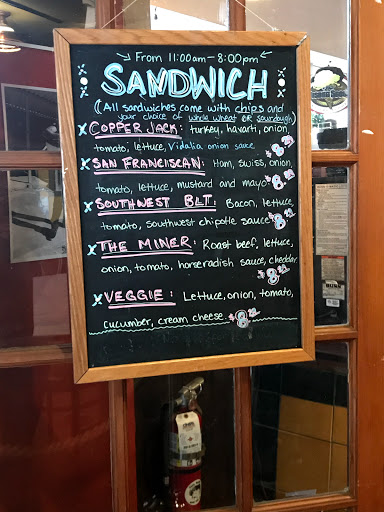 From 11:00am - 8:00pm
SANDWICH
(All sandwiches come with chips and
your choice of whole wheat or sourdough)
COPPER JACK: turkey, havarti, onion,
tomato, lettuce, Vidalia onion sauce
SAN FRANCISCAN: Ham, swiss, onion,
tomato, lettuce, mustard and mayo
SOUTHWEST BLT: Bacon, lettuce,
tomato, southwest chipotle sauce
THE MINER: Roast beef, lettuce,
onion, tomato, horseradish sauce, cheddar
VEGGIE: Lettuce, onion, tomato,
cucumber, cream cheese